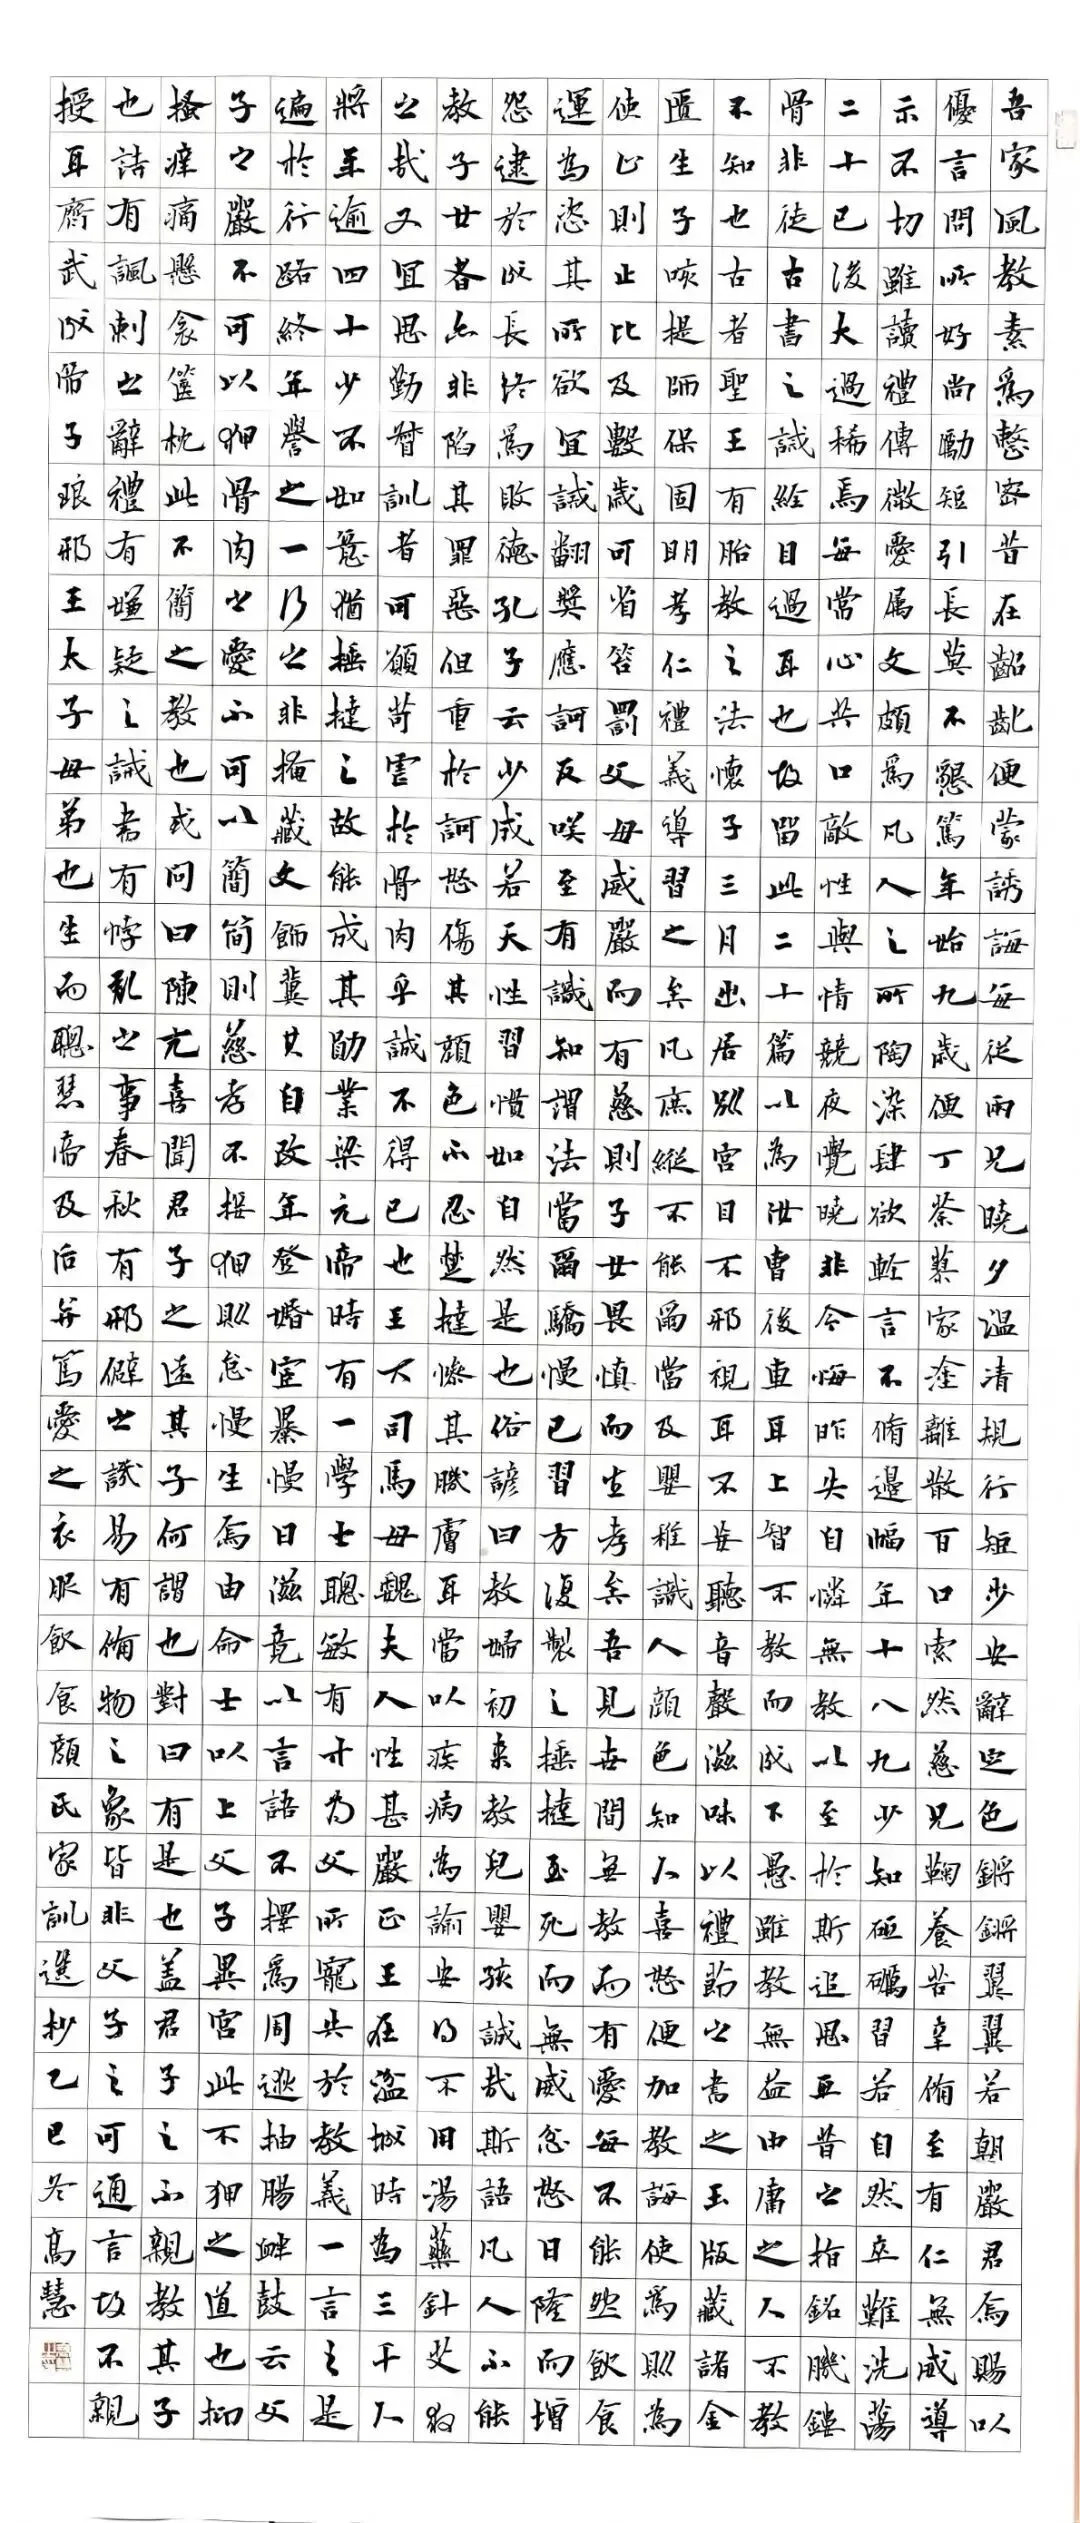 吾家風教素爲整密昔在齠齔便蒙誘誨每從兩兄曉夕溫凊規行矩步安辭定色鏘鏘翼翼若朝嚴君焉賜以
優言問所好尚勵短引長莫不懇篤年始九歲便丁荼蓼家塗離散百口索然慈兄鞠養苦辛備至有仁無威導
示不切雖讀禮傳微愛屬文頗爲凡人之所陶染肆欲輕言不脩邊幅年十八九少知砥礪習若自然卒難洗蕩
二十已後大過稀焉每常心共口敵性與情競夜覺曉非今悔昨失自憐無教以至於斯追思平昔之指銘肌鏤
骨非徒古書之誡經目過耳也故留此二十篇以為汝曹後車耳上智不教而成下愚雖教無益中庸之人不教
不知也古者聖王有胎教之法懷子三月出居別宮目不邪視耳不妄聽音聲滋味以禮節之書之玉版藏諸金
匱生子咳提師保固明孝仁禮義導習之矣凡庶縱不能爾當及嬰稚識人顏色知人喜怒便加教誨使爲則為
使止則止比及數歲可省笞罰父母威嚴而有慈則子女畏慎而生孝矣吾見世間無教而有愛每不能然飲食
運為恣其所欲宜誡翻獎應訶反笑至有識知謂法當爾驕慢已習方復製之捶撻至死而無威忿怒日隆而增
怨逮於成長終爲敗德孔子云少成若天性習慣如自然是也俗諺曰教婦初來教兒嬰孩誠哉斯語凡人不能
教子女者亦非陷其罪惡但重於訶怒傷其顏色不忍楚撻慘其肌膚耳當以疾病為諭安得不用湯藥針艾救
之哉又宜思勤督訓者可願苛虐於骨肉乎誠不得已也王大司馬母魏夫人性甚嚴正王在湓城時為三千人
將年逾四十少不如意猶捶撻之故能成其勛業梁元帝時有一學士聰敏有才為父所寵失於教義一言之是
遍於行路終年譽之一行之非掩藏文飾冀其自改年登婚宦暴慢日滋竟以言語不擇爲周逖抽腸釁鼓云父
子之嚴不可以狎骨肉之愛不可以簡簡則慈孝不接狎則怠慢生焉由命士以上父子異宮此不狎之道也抑
搔癢痛懸衾篋枕此不簡之教也或問曰陳亢喜聞君子之遠其子何謂也對曰有是也蓋君子之不親教其子
也詩有諷刺之辭禮有嫌疑之誡書有悖亂之事春秋有邪僻之譏易有備物之象皆非父子之可通言故不親
授耳齊武成帝子琅邪王太子母弟也生而聰慧帝及后并篤愛之衣服飲食顏氏家訓選抄乙巳冬高慧